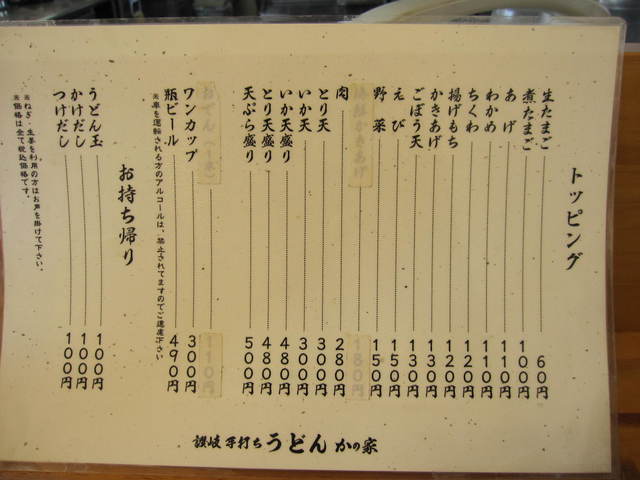 トッピング
生たまご 60円
煮たまご 100円
あげ 110円
わかめ 110円
ちくわ 120円
揚げもち 120円
かきあげ 130円
ごぼう天 130円
えび 150円
野菜 150円
180円
肉 280円
とり天 300円
いか天 300円
いか天盛り 480円
とり天盛り 480円
天ぷら盛り 500円
おでん(一本) 110円
ワンカップ 300円
瓶ビール 490円
※車を運転される方のアルコールは、禁止されてますのでご遠慮下さい
お持ち帰り
うどん玉 100円
かけだし 100円
つけだし 100円
※ねぎ・生姜を利用の方はお声を掛けて下さい。
※価格は全て税込価格です。
讃岐手打ちうどんかの家